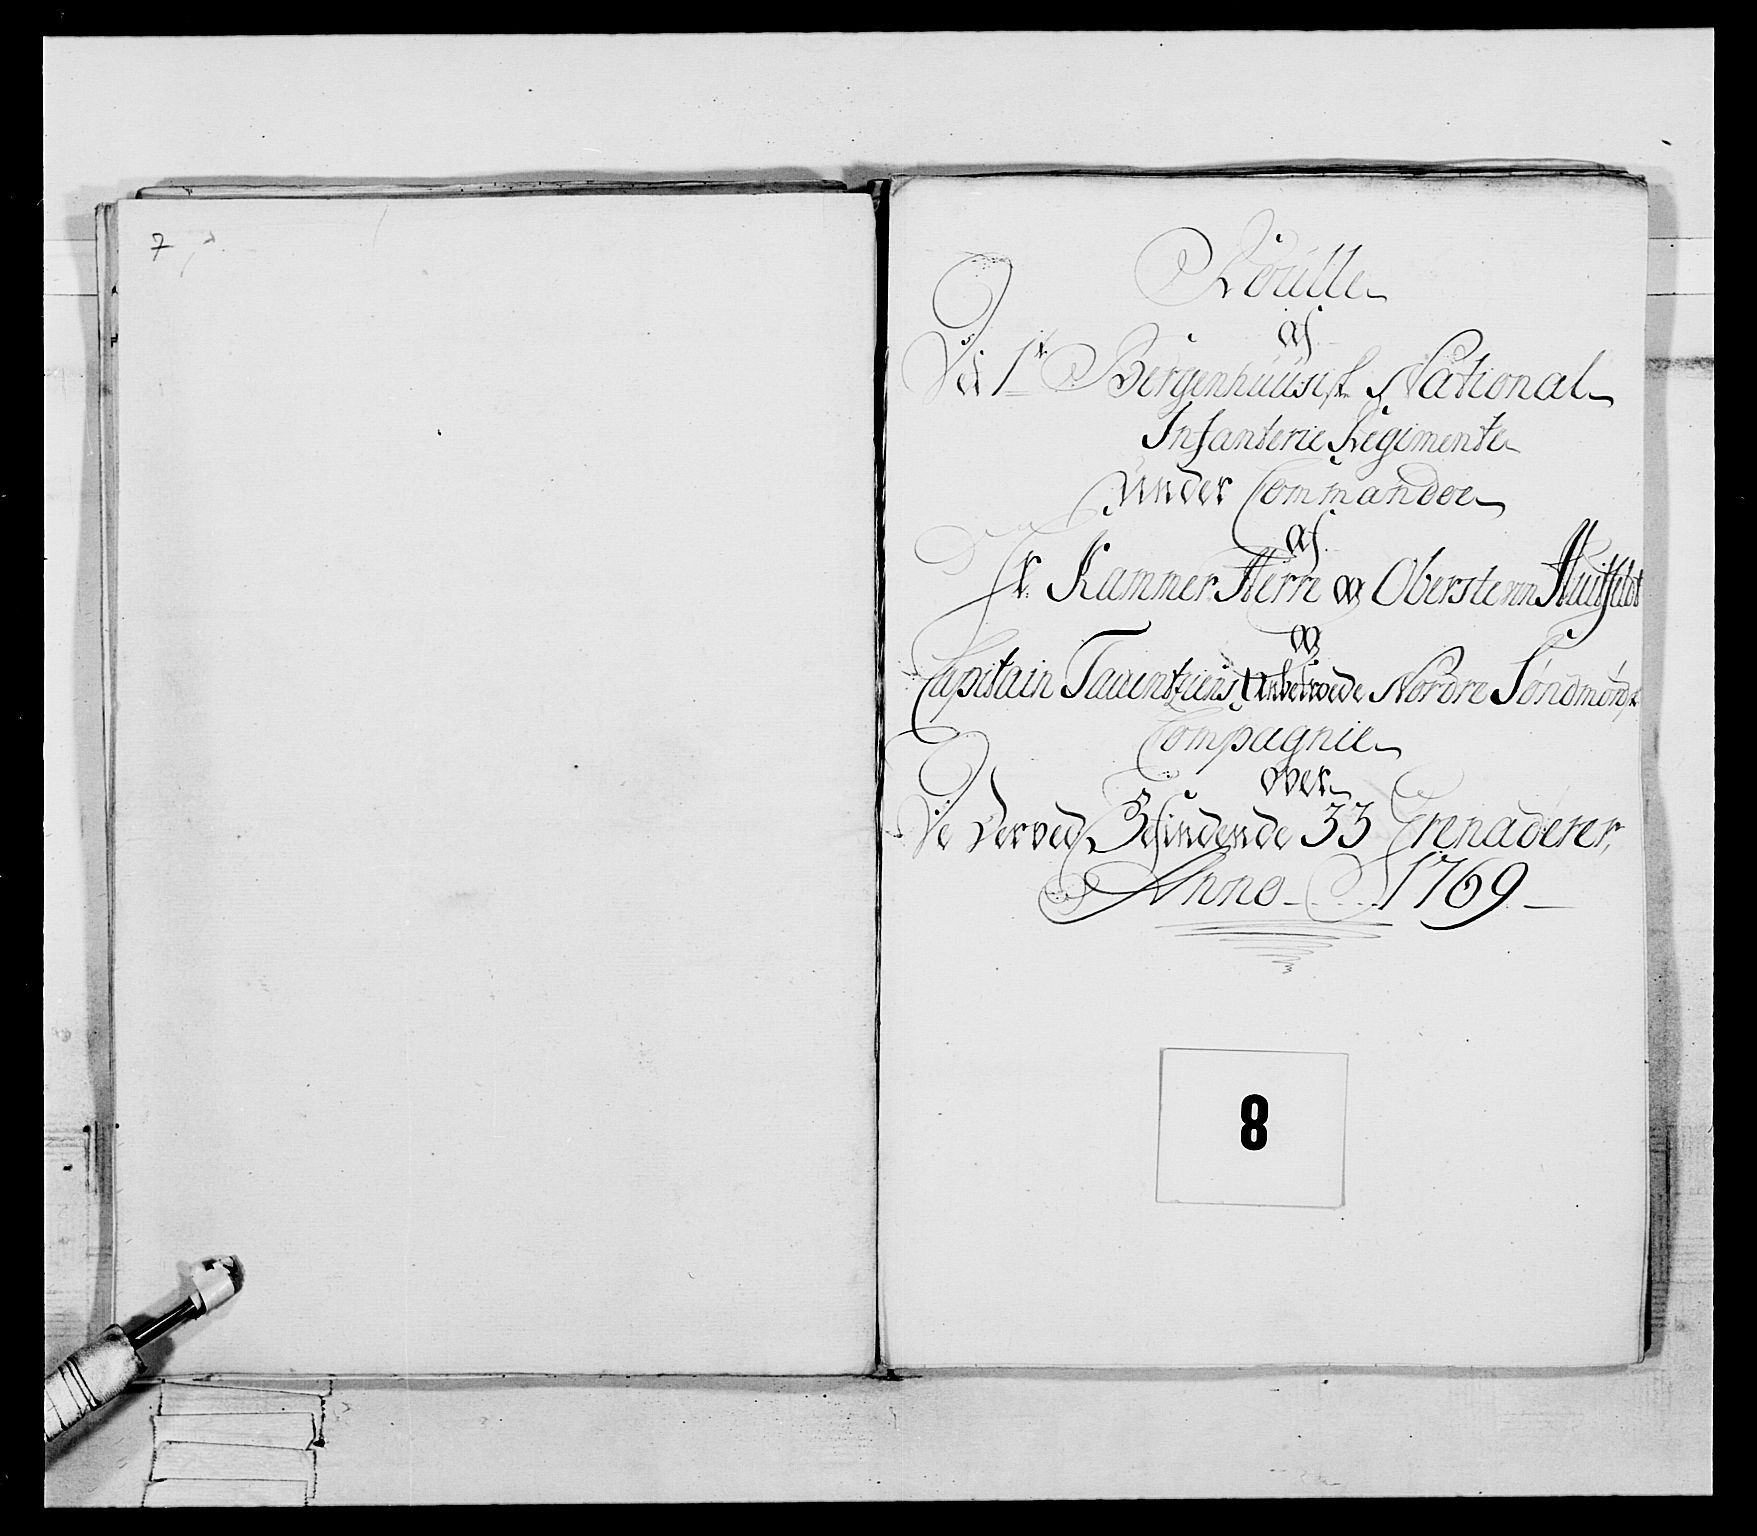 7
Roulle
af
Det 1te Bergenhuusiske National
Infanterie Regimente
under Commandoe
af
Hr. Kammer Herre og Oberste von Huitfeldt
og
Capitain Tauentziens Anbetroede Nordre Søndmørske
Compagnie
over
De Derved Befindende 33 Grenaderer,
Anno 1769
8